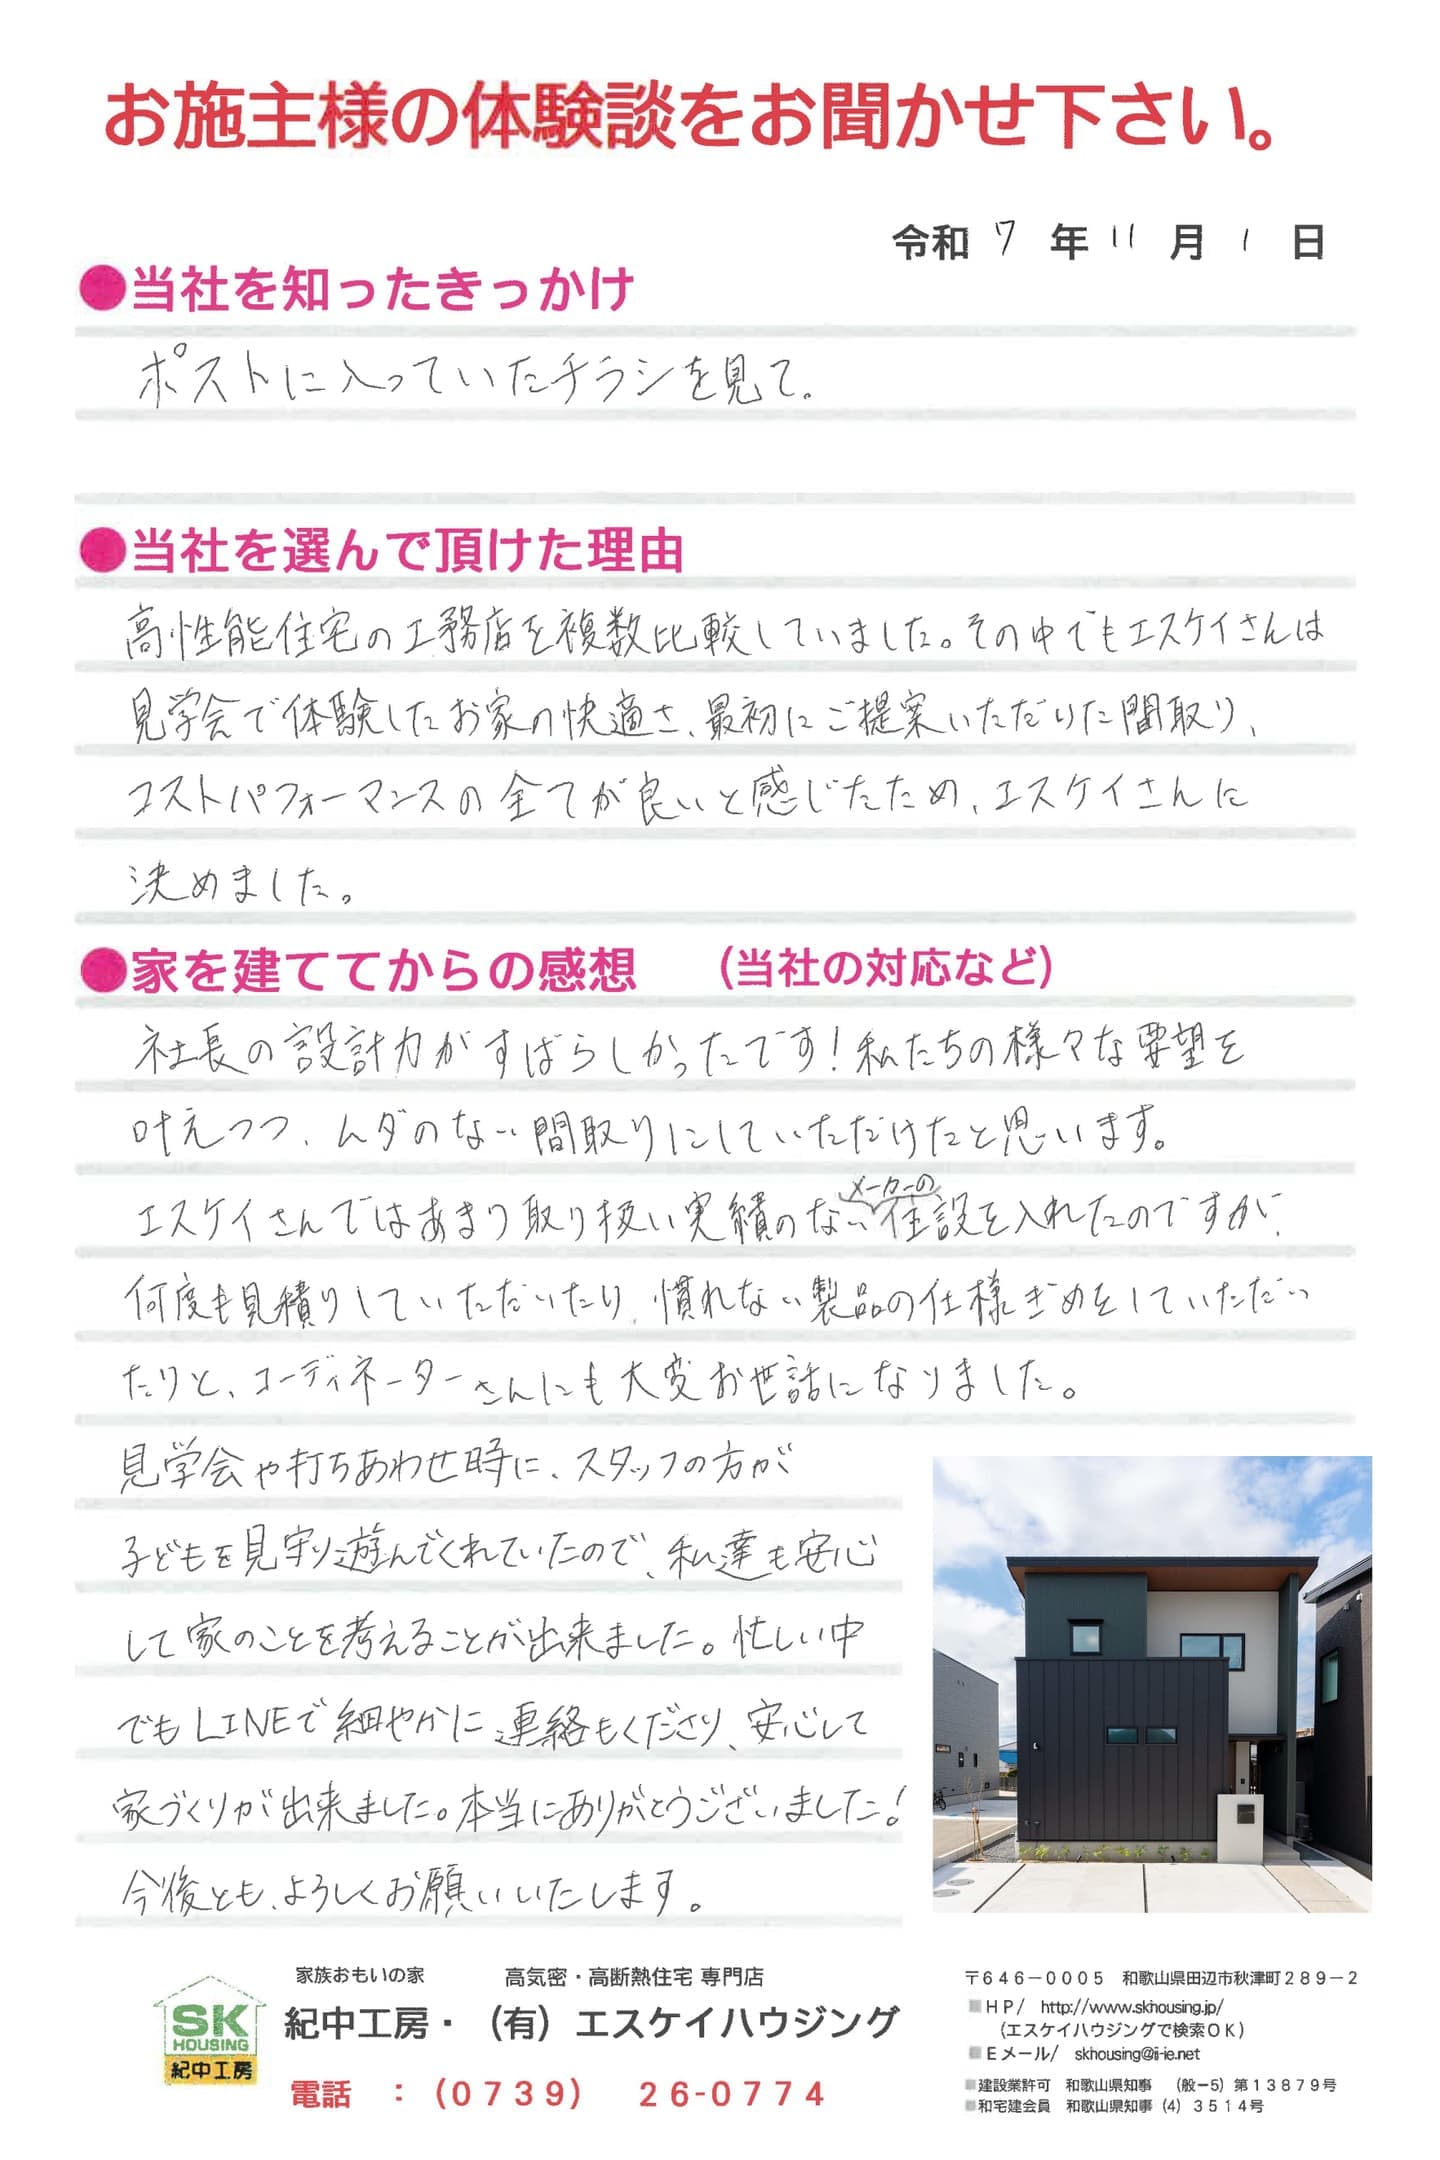 お施主様の体験談をお聞かせ下さい。
令和 7 年 11 月 1 日
●当社を知ったきっかけ
ポストに入っていたチラシを見て。
●当社を選んで頂けた理由
高性能住宅の工務店を複数比較していました。その中でもエスケイさんは
見学会で体験したお家の快適さ、最初にご提案いただいた間取り、
コストパフォーマンスの全てが良いと感じたため、エスケイさんに
決めました。
●家を建ててからの感想 （当社の対応など）
社長の設計力がすばらしかったです！私たちの様々な要望を
叶えつつ、ムダのない間取りにしていただけたと思います。
エスケイさんではあまり取り扱い実績のないメーカーの住設を入れたのですが、
何度も見積りしていただいたり、慣れない製品の仕様ぎめをしていただい
たりと、コーディネーターさんにも大変お世話になりました。
見学会や打ちあわせ時に、スタッフの方が
子どもを見守り遊んでくれていたので、私達も安心
して家のことを考えることが出来ました。忙しい中
でもLINEで細やかに連絡もくださり、安心して
家づくりが出来ました。本当にありがとうございました！
今後とも、よろしくお願いいたします。
SK
HOUSING
紀中工房
家族おもいの家 高気密・高断熱住宅 専門店
紀中工房・（有）エスケイハウジング
電話 ：（0739） 26-0774
〒646－0005 和歌山県田辺市秋津町289－2
■HP/ http://www.skhousing.jp/
（エスケイハウジングで検索OK）
■Eメール/ skhousing@ii-ie.net
■建設業許可 和歌山県知事 （般ー5）第13879号
■和宅建会員 和歌山県知事（4）3514号